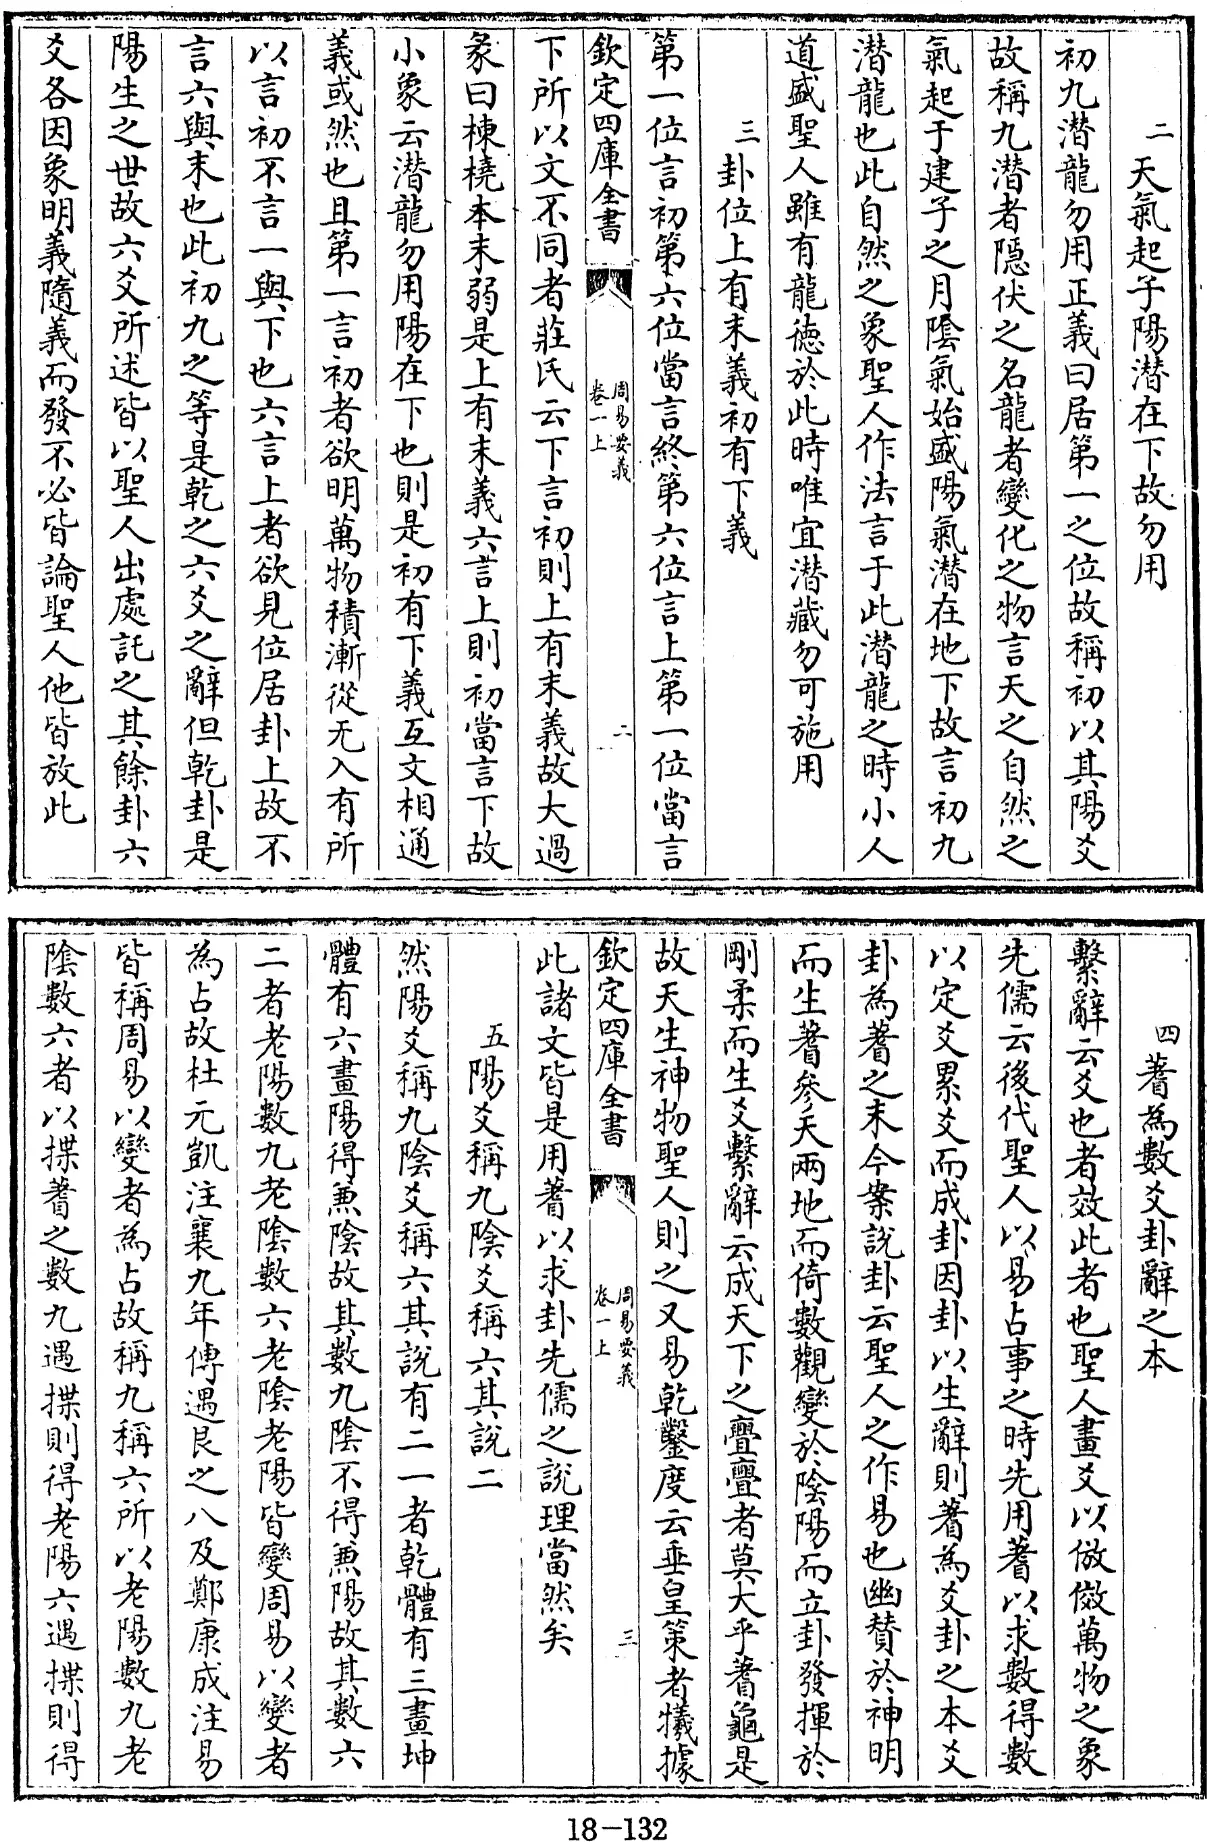 二天氣起子陽潛在下故勿用
初九潛龍勿用正義曰居第一之位故稱初以其陽爻
故稱九潛者隱伏之名龍者變化之物言天之自然之
氣起于建子之月陰氣始盛陽氣潛在地下故言初九
潛龍也此自然之象聖人作法言于此潛龍之時小人
道盛聖人雖有龍德於此時唯宜潛藏勿可施用
三卦位上有末義初有下義
第一位言初第六位當言終第六位言上第一位當言
欽定四庫全書
周易要義
卷一上
二
下所以文不同者莊氏云下言初則上有末義故大過
彖曰棟橈本末弱是上有末義六言上則初當言下故
小象云潛龍勿用陽在下也則是初有下義互文相通
義或然也且第一言初者欲明萬物積漸從无入有所
以言初不言一與下也六言上者欲見位居卦上故不
言六與末也此初九之等是乾之六爻之辭但乾卦是
陽生之世故六爻所述皆以聖人出處託之其餘卦六
爻各因象明義隨義而發不必皆論聖人他皆放此
四蓍為數爻卦辭之本
繫辭云爻也者效此者也聖人畫爻以倣傚萬物之象
先儒云後代聖人以易占事之時先用蓍以求數得數
以定爻累爻而成卦因卦以生辭則蓍為爻卦之本爻
卦為蓍之末今案說卦云聖人之作易也幽贊於神明
而生蓍參天兩地而倚數觀變於陰陽而立卦發揮於
剛柔而生爻繫辭云成天下之亹亹者莫大乎蓍龜是
故天生神物聖人則之又易乾鑿度云垂皇策者犧據
欽定四庫全書
周易要義
卷一上
三
此諸文皆是用蓍以求卦先儒之說理當然矣
五陽爻稱九陰爻稱六其說二
然陽爻稱九陰爻稱六其說有二一者乾體有三畫坤
體有六畫陽得兼陰故其數九陰不得兼陽故其數六
二者老陽數九老陰數六老陰老陽皆變周易以變者
為占故杜元凱注襄九年傳遇艮之八及鄭康成注易
皆稱周易以變者為占故稱九稱六所以老陽數九老
陰數六者以揲蓍之數九遇揲則得老陽六遇揲則得
18-132